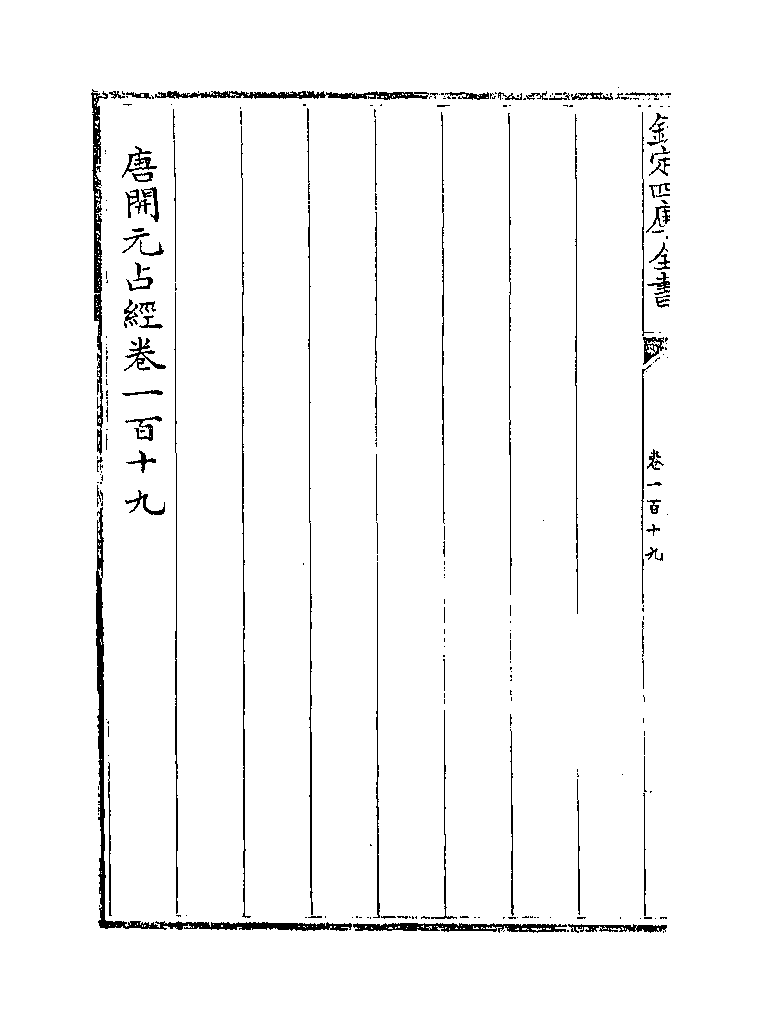 欽定四庫全書
卷一百十九
唐開元占經卷一百十九